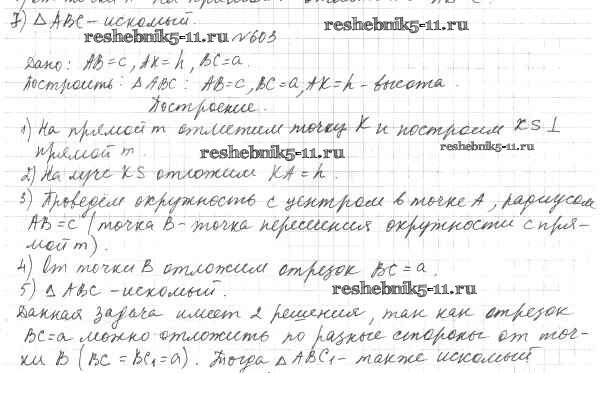 7) △ABC - искомый.
reshebnik5-11.ru
reshebnik5-11.ru №603
Дано: AB=c, AK=h, BC=a.
Построить: △ABC: AB=c, BC=a, AK=h - высота.
Построение.
1) На прямой m отметим точку K и построим KS ⊥
прямой m.
reshebnik5-11.ru
reshebnik5-11.ru
2) На луче KS отложим KA=h.
3) Проведём окружность с центром в точке A, радиусом
AB=c (точка B - точка пересечения окружности с пря-
мой m).
4) От точки B отложим отрезок BC=a.
5) △ABC - искомый.
reshebnik5-11.ru
Данная задача имеет 2 решения, так как отрезок
BC=a можно отложить по разные стороны от точ-
ки B (BC=BC₁=a). Тогда △ABC₁ - также искомый